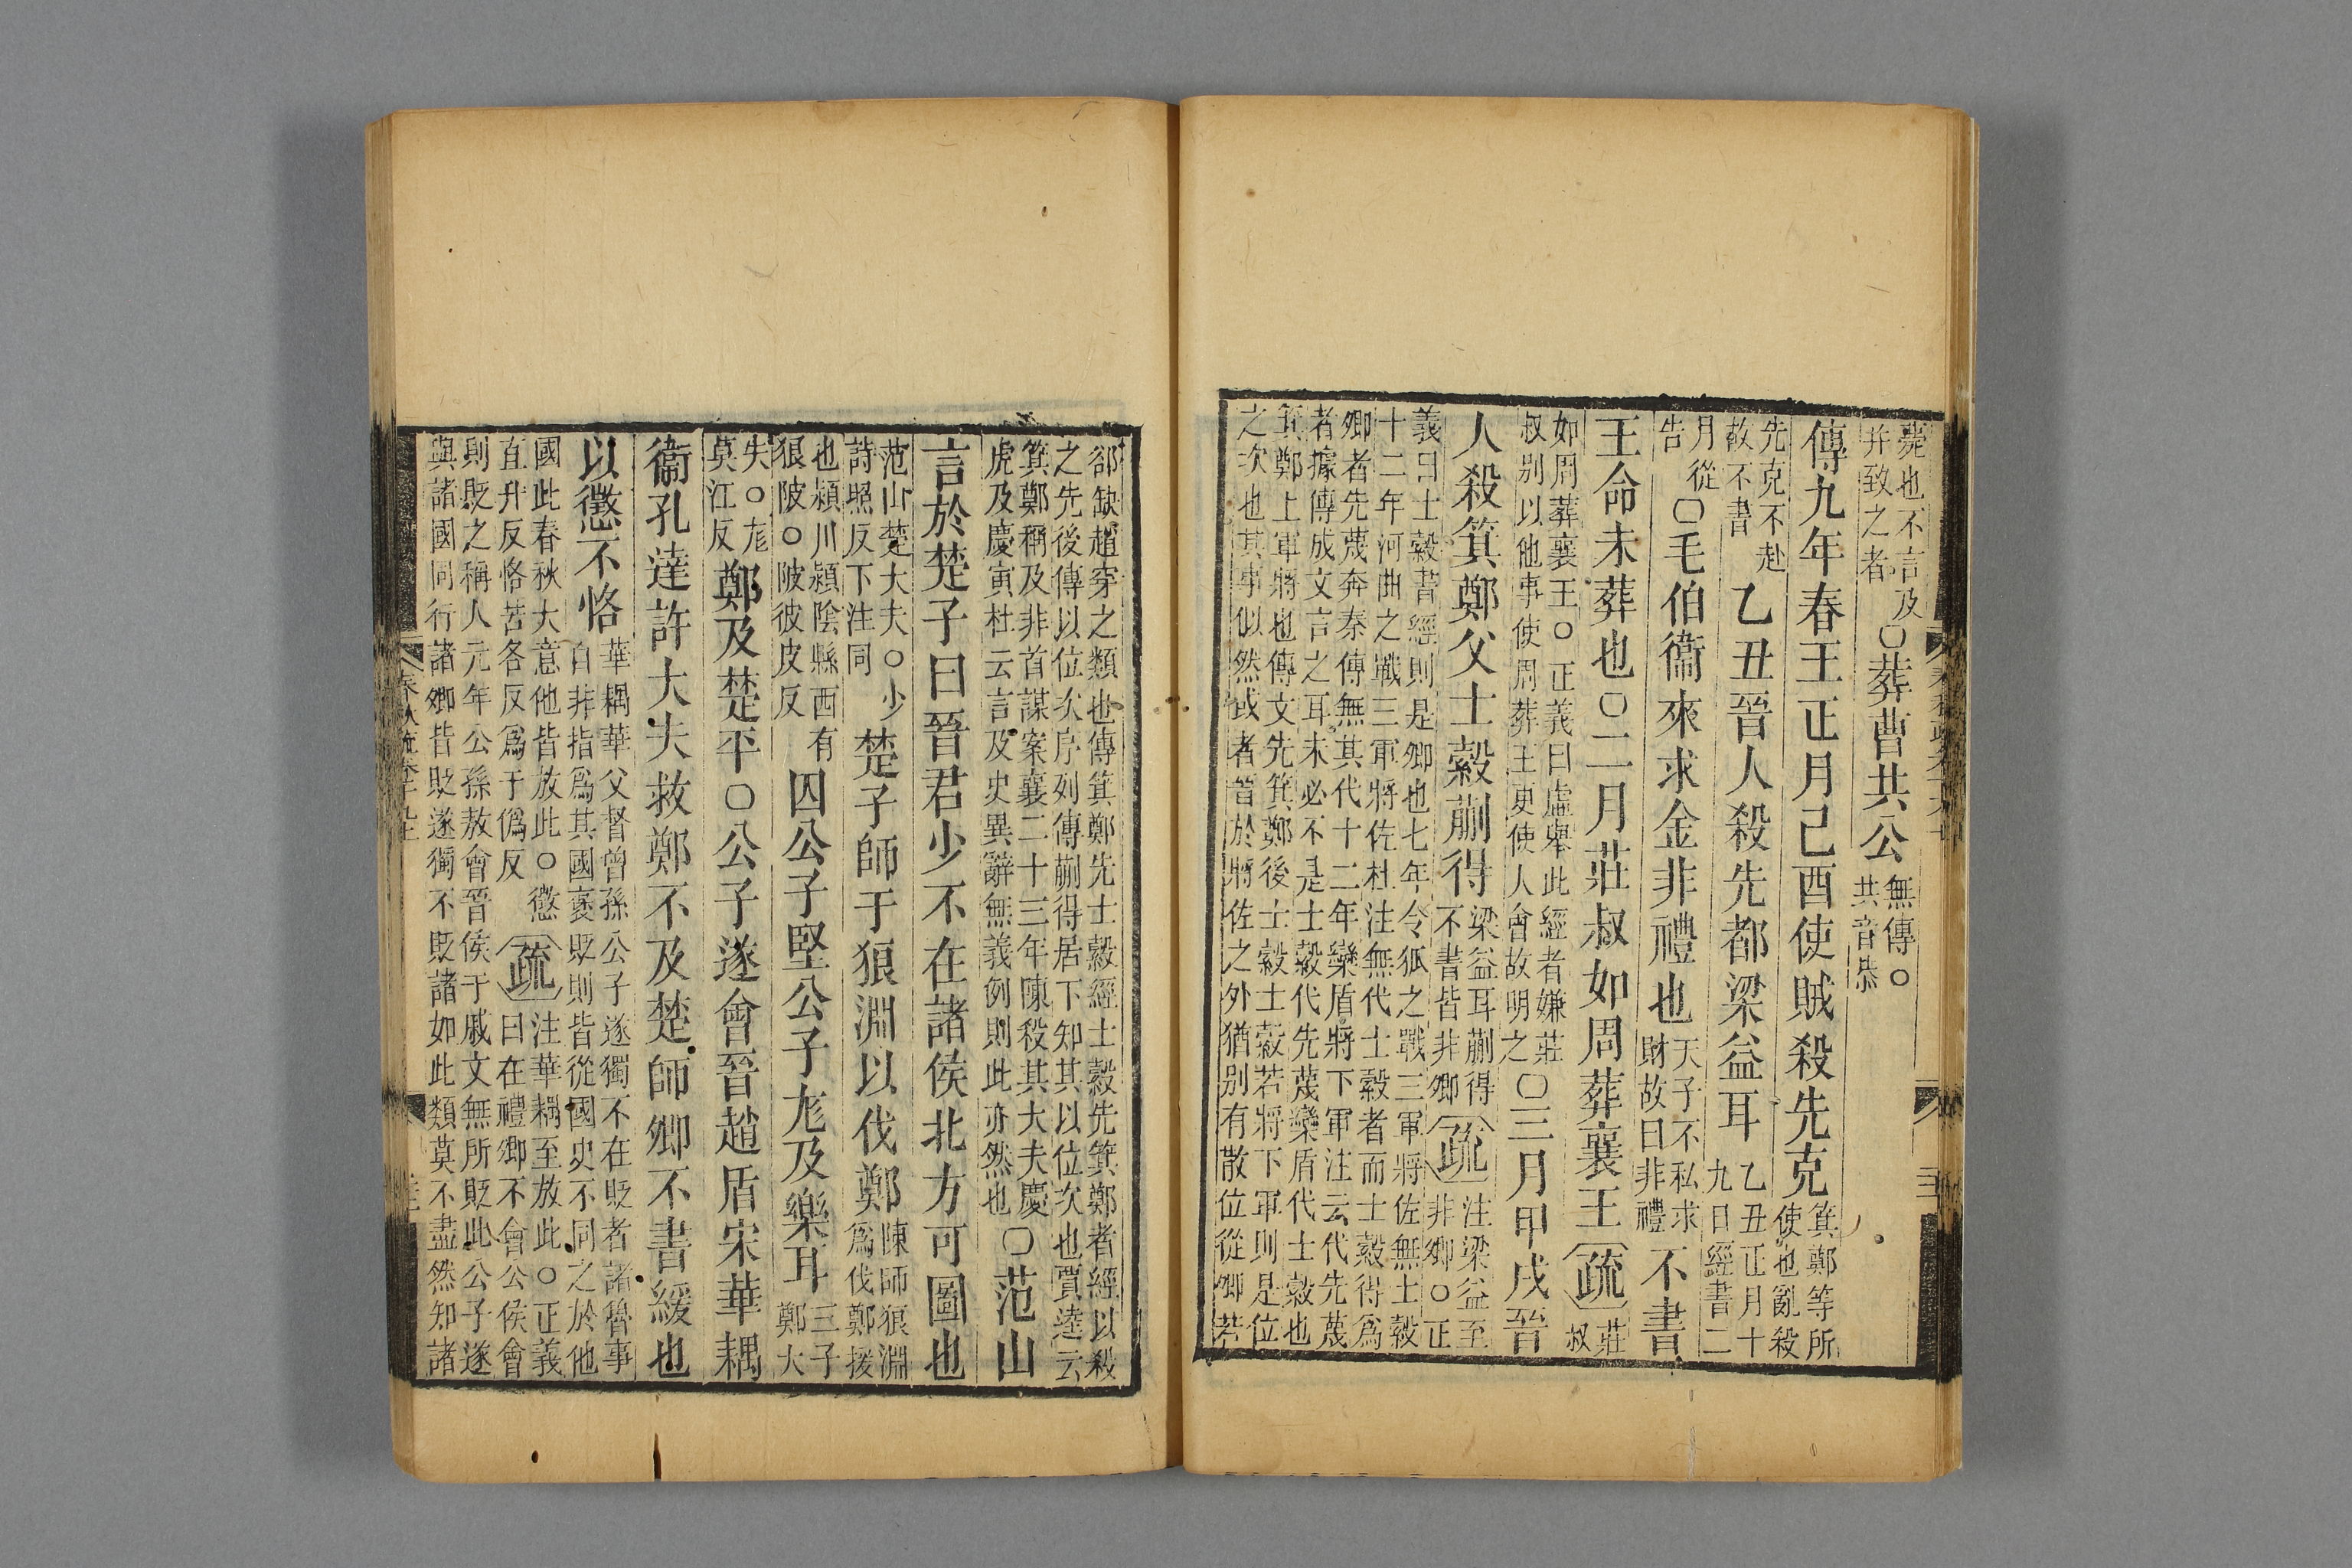 薨也不言及
并致之者
○葬曹共公
無傳○
共音恭
傳九年春王正月己酉使賊殺先克
箕鄭等所
使也亂殺
先克不赴
故不書
乙丑晉人殺先都梁益耳
乙丑正月十
九日經書二
月從
告
○毛伯衞來求金非禮也
天子不私求
財故曰非禮
不書
王命未葬也○二月莊叔如周葬襄王
疏
莊
叔
如周葬襄王○正義曰虛舉此經者嫌莊
叔別以他事使周葬王更使人會故明之
○三月甲戌晉
人殺箕鄭父士縠蒯得
梁益耳蒯得
不書皆非卿
疏
注梁益至
非卿○正
義曰士縠書經則是卿也七年令狐之戰三軍將佐無士縠
十二年河曲之戰三軍將佐杜注無代士縠者而士縠得爲
卿者先蔑奔秦傳無其代十二年欒盾將下軍注云代先蔑
者據傳成文言之耳未必不是士縠代先蔑欒盾代士縠也
箕鄭上軍將也傳文先箕鄭後士縠士縠若將下軍則是位
之次也其事似然或者晉於將佐之外猶別有散位從卿若
郤缺趙穿之類也傳箕鄭先士縠經士縠先箕鄭者經以殺
之先後傳以位次序列傳蒯得居下知其以位次也賈逵云
箕鄭稱及非首謀案襄二十三年陳殺其大夫慶
虎及慶寅杜云言及史異辭無義例則此亦然也
○范山
言於楚子曰晉君少不在諸侯北方可圖也
范山楚大夫○少
詩照反下注同
楚子師于狼淵以伐鄭
陳師狼淵
爲伐鄭援
也潁川潁陰縣西有
狼陂○陂彼皮反
囚公子堅公子尨及樂耳
三子
鄭大
夫○尨
莫江反
鄭及楚平○公子遂會晉趙盾宋華耦
衞孔達許大夫救鄭不及楚師卿不書緩也
以懲不恪
華耦華父督曾孫公子遂獨不在貶者諸魯事
自非指爲其國褒貶則皆從國史不同之於他
國此春秋大意他皆放此○懲
直升反恪苦各反爲于僞反
疏
注華耦至放此○正義
曰在禮卿不會公侯會
則貶之稱人元年公孫敖會晉侯于戚文無所貶此公子遂
與諸國同行諸卿皆貶遂獨不貶諸如此類莫不盡然知諸